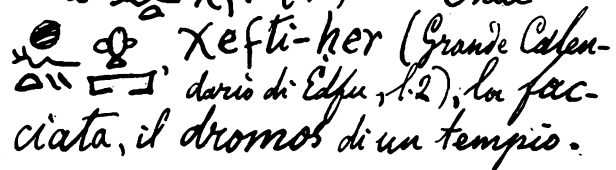 χefti-ḥer (Grande Calen-
dario di Edfu, l. 2), la fac-
ciata, il dromos di un tempio.